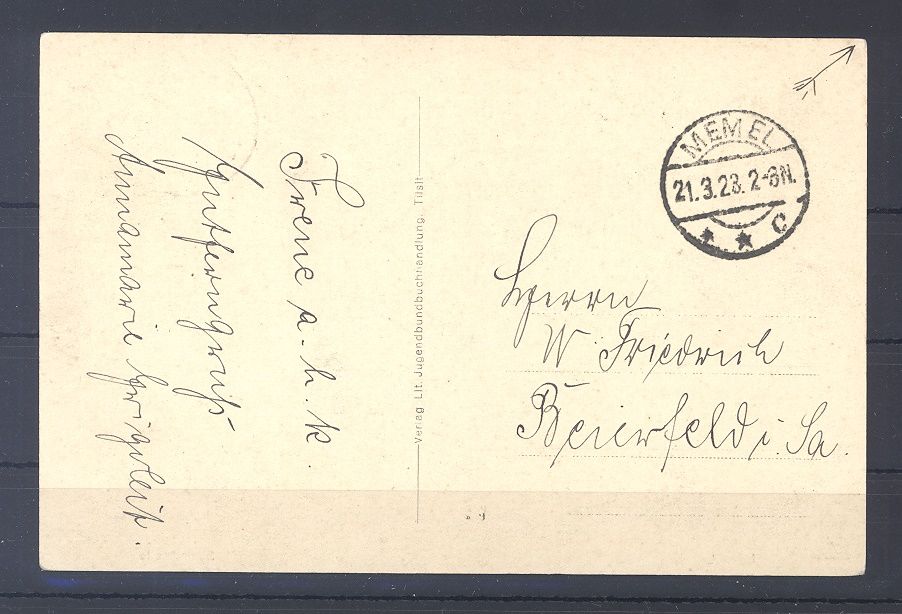 Irene a. h. k.
Gutferngruß
Annamarie Grigoleit.
Verlag Lit. Jugendbundbuchhandlung, Tilsit
MEMEL
21.3.23. 2-3N.
* * C
Herrn
W Friedrich
Beierfeld i. Sa.